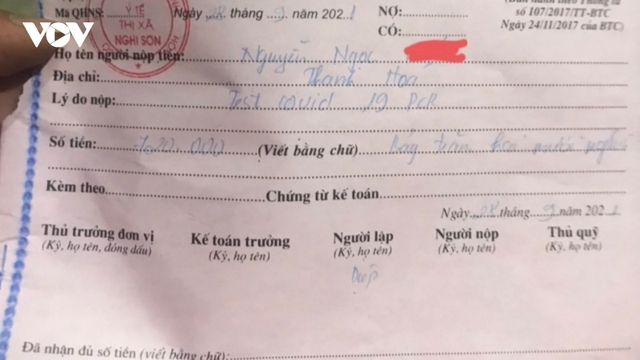 VOV
Mã QHNS: Ngày 08 tháng 9 năm 2021 NỢ:
số 107/2017/TT-BTC
Y TẾ
THỊ XÃ
NGHI SƠN
CÓ:
Ngày 24/11/2017 của BTC)
Họ tên người nộp tiền: Nguyễn Ngọc
Địa chỉ: Thanh Hoá
Lý do nộp: Test covid 19 PCR
Số tiền: 720.000 (Viết bằng chữ) Bảy trăm hai mươi nghìn
Kèm theo Chứng từ kế toán.
Ngày 08 tháng 9 năm 2021
Thủ trưởng đơn vị Kế toán trưởng Người lập Người nộp Thủ quỹ
(Ký, họ tên, đóng dấu) (Ký, họ tên) (Ký, họ tên) (Ký, họ tên) (Ký, họ tên)
Đã nhận đủ số tiền (viết bằng chữ):